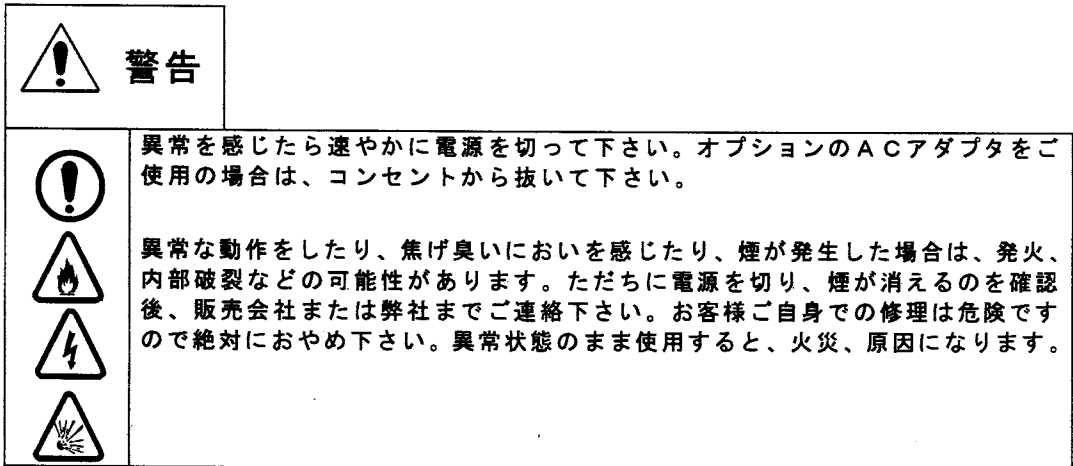 警告
異常を感じたら速やかに電源を切って下さい。オプションのＡＣアダプタをご
使用の場合は、コンセントから抜いて下さい。
異常な動作をしたり、焦げ臭いにおいを感じたり、煙が発生した場合は、発火、
内部破裂などの可能性があります。ただちに電源を切り、煙が消えるのを確認
後、販売会社または弊社までご連絡下さい。お客様ご自身での修理は危険です
ので絶対におやめ下さい。異常状態のまま使用すると、火災、原因になります。